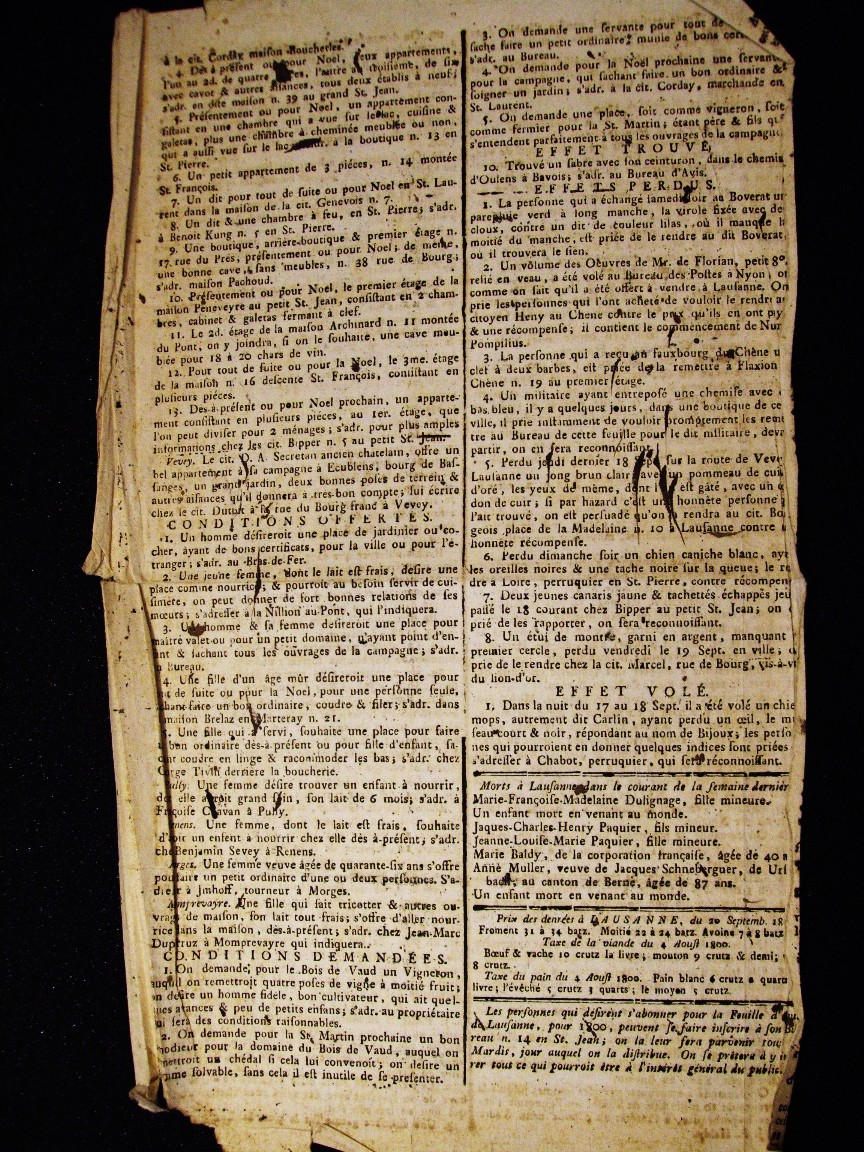 à la cit. Corday maison Boucherles.
4. Dès à présent ou pour Noel, deux appartements,
l'un au 2d. de quatre l'autre au troisième, de six
avec cavot & autres aisances, tous deux établis à neuf;
s'adr. en dite maison n. 39 au grand St. Jean.
5. Présentement ou pour Noel, un appartement con-
sistant en une chambre qui a vue sur le lac, cuisine &
galetas, plus une chambre à cheminée meublée ou non,
qui a aussi vue sur le lac à la boutique n. 13 en
St. Pierre.
6. Un petit appartement de 3 piéces, n. 14 montée
St. François.
7. Un dit pour tout de suite ou pour Noel en St. Lau-
rent dans la maison de la cit. Genevois n. 7.
8. Un dit & une chambre à feu, en St. Pierre; s'adr.
à Benoit Kung n. 5 en St. Pierre.
9. Une boutique, arriére-boutique & premier étage n.
17. rue du Pré, présentement ou pour Noel; de même,
une bonne cave, sans meubles, n. 38 rue de Bourg;
s'adr. maison Pachoud.
10. Présentement ou pour Noel, le premier étage de la
maison Péneveyre au petit St. Jean, consistant en 2 cham-
bres, cabinet & galetas fermant à clef.
11. Le 2d. étage de la maison Archinard n. 11 montée
du Pont, on y joindra, si on le souhaite, une cave meu-
blée pour 18 à 20 chars de vin.
12. Pour tout de suite ou pour la Noel, le 3me. étage
de la maison n. 16 descente St. François, consistant en
plusieurs piéces.
13. Dès-à-présent ou pour Noel prochain, un apparte-
ment consistant en plusieurs piéces, au 1er. étage, que
l'on peut diviser pour 2 ménages; s'adr. pour plus amples
informations chez les cit. Bipper n. 5 au petit St. Jean.
Vevey. Le cit. D. A. Secretan ancien châtelain, offre un
bel appartement à sa campagne à Ecublens, bourg de Bas-
sanges, un grand jardin, deux bonnes poses de terrein &
autres aisances qu'il donnera à très-bon compte; lui écrire
chez le cit. Dutoit à la rue du Bourg franc à Vevey.
CONDITIONS OFFERTES.
1. Un homme désireroit une place de jardinier ou co-
cher, ayant de bons certificats, pour la ville ou pour l'é-
tranger; s'adr. au Bras-de-Fer.
2. Une jeune femme, dont le lait est frais, desire une
place comme nourrice; & pourroit au besoin servir de cui-
sinière, on peut donner de fort bonnes relations de ses
mœurs; s'adresser à la Nillion au Pont, qui l'indiquera.
3. Un homme & sa femme désireroit une place pour
maître valet ou pour un petit domaine, n'ayant point d'en-
nt & sachant tous les ouvrages de la campagne; s'adr.
Bureau.
4. Une fille d'un âge mûr désireroit une place pour
de suite ou pour la Noel, pour une personne seule,
chant faire un bon ordinaire, coudre & filer; s'adr. dans
maison Brelaz en Marteray n. 21.
5. Une fille qui a servi, souhaite une place pour faire
bon ordinaire dès-à-présent ou pour fille d'enfant, sa-
coudre en linge & raccommoder les bas; s'adr. chez
George Tivill derrière la boucherie.
Pully. Une femme désire trouver un enfant à nourrir,
elle auroit grand soin, son lait de 6 mois; s'adr. à
Françoise Chavan à Pully.
Renens. Une femme, dont le lait est frais, souhaite
d'avoir un enfant à nourrir chez elle dès à-présent; s'adr.
chez Benjamin Sevey à Renens.
Morges. Une femme veuve âgée de quarante-six ans s'offre
pour faire un petit ordinaire d'une ou deux personnes. S'a-
dresser à Jmhoff, tourneur à Morges.
Momprevayre. Une fille qui sait tricotter & autres ou-
vrages de maison, son lait tout frais; s'offre d'aller nour-
rice dans la maison, dès-à-présent; s'adr. chez Jean-Marc
Dupruz à Momprevayre qui indiquera.
CONDITIONS DEMANDÉES.
1. On demande, pour le Bois de Vaud un Vigneron,
auquel on remettroit quatre poses de vigne à moitié fruit;
on desire un homme fidele, bon cultivateur, qui ait quel-
ques avances & peu de petits enfans; s'adr. au propriétaire
qui fera des conditions raisonnables.
2. On demande pour la St. Martin prochaine un bon
modieur pour la domaine du Bois de Vaud, auquel on
remettroit un chédal si cela lui convenoit; on desire un
homme solvable, sans cela il est inutile de se présenter.
3. On demande une servante pour tout de
sache faire un petit ordinaire; munie de bons cer
s'adr. au Bureau.
4. On demande pour la Noel prochaine une servant
pour la campagne, qui sachant faire un bon ordinaire &
soigner un jardin; s'adr. à la cit. Corday, marchande en
St. Laurent.
5. On demande une place, soit comme vigneron, soit
comme fermier pour la St. Martin; étant père & fils qu
s'entendent parfaitement à tous les ouvrages de la campagne
EFFET TROUVÉ.
10. Trouvé un sabre avec son ceinturon, dans le chemin
d'Oulens à Bavois; s'adr. au Bureau d'Avis.
EFFETS PERDUS.
1. La personne qui a échangé samedi soir au Boverat un
parepluie verd à long manche, la virole fixée avec de
cloux, contre un dit de couleur lilas, où il manque la
moitié du manche, est priée de le rendre au dit Boverat
où il trouvera le sien.
2. Un volume des Oeuvres de Mr. de Florian, petit 8°.
relié en veau, a été volé au Bureau des Postes à Nyon, or
comme on sait qu'il a été offert à vendre à Lausanne. On
prie les personnes qui l'ont acheté de vouloir le rendre au
citoyen Heny au Chene contre le prix qu'ils en ont pay
& une récompense; il contient le commencement de Num
Pompilius.
3. La personne qui a reçu au fauxbourg du Chêne u
clef à deux barbes, est priée de la remettre à Flaxion
Chêne n. 19 au premier étage.
4. Un militaire ayant entreposé une chemise avec
bas bleu, il y a quelques jours, dans une boutique de ce
ville, il prie instamment de vouloir promtement les remt
tre au Bureau de cette feuille pour le dit militaire, deva
partir, on en sera reconnoissant.
5. Perdu jeudi dernier 18 Sept. sur la route de Veve
Lausanne un jong brun clair avec un pommeau de cui
d'oré, les yeux de même, dont l' est gâté, avec un c
don de cuir; si par hazard c'est un honnête personne
l'ait trouvé, on est persuadé qu'on rendra au cit. Bo
geois place de la Madelaine n. 10 à Lausanne contre
honnête récompense.
6. Perdu dimanche soir un chien caniche blanc, aya
les oreilles noires & une tache noire sur la queue; le re
dre à Loire, perruquier en St. Pierre, contre récompen
7. Deux jeunes canaris jaune & tachettés échappés jeu
passé le 18 courant chez Bipper au petit St. Jean; on
prié de les rapporter, on sera reconnoissant.
8. Un étui de montre, garni en argent, manquant
premier cercle, perdu vendredi le 19 Sept. en ville;
prie de le rendre chez la cit. Marcel, rue de Bourg, vis-à-vi
du lion-d'or.
EFFET VOLÉ.
1. Dans la nuit du 17 au 18 Sept. il a été volé un chie
mops, autrement dit Carlin, ayant perdu un œil, le mu
seau court & noir, répondant au nom de Bijoux; les perso
nes qui pourroient en donner quelques indices sont priées
s'adresser à Chabot, perruquier, qui sera réconnoissant.
Morts à Lausanne dans le courant de la semaine dernièr
Marie-Françoise-Madelaine Dulignage, fille mineure.
Un enfant mort en venant au monde.
Jaques-Charles-Henry Paquier, fils mineur.
Jeanne-Louise-Marie Paquier, fille mineure.
Marie Baldy, de la corporation française, âgée dé 40 a
Anné Muller, veuve de Jacques Schneberguer, de Url
bach, au canton de Berne, âgée de 87 ans.
Un enfant mort en venant au monde.
Prix des denrées à LAUSANNE, du 20 Septemb. 18
Froment 31 à 34 batz. Moitié 22 à 24 batz. Avoine 7 à 8 batz
Taxe de la viande du 4 Aoust 1800.
Bœuf & vache 10 crutz la livre; mouton 9 crutz & demi;
8 crutz.
Taxe du pain du 4 Aoust 1800. Pain blanc 6 crutz & quart
livre; l'évêché 5 crutz 3 quarts; le moyen 5 crutz.
Les personnes qui désirent s'abonner pour la Feuille d'
de Lausanne, pour 1800, peuvent se faire inscrire à son Bu
reau n. 14 en St. Jean; on la leur fera parvenir tous
Mardis, jour auquel on la distribue. On se prêtera à y in
rer tout ce qui pourroit être à l'intérêt général du public.